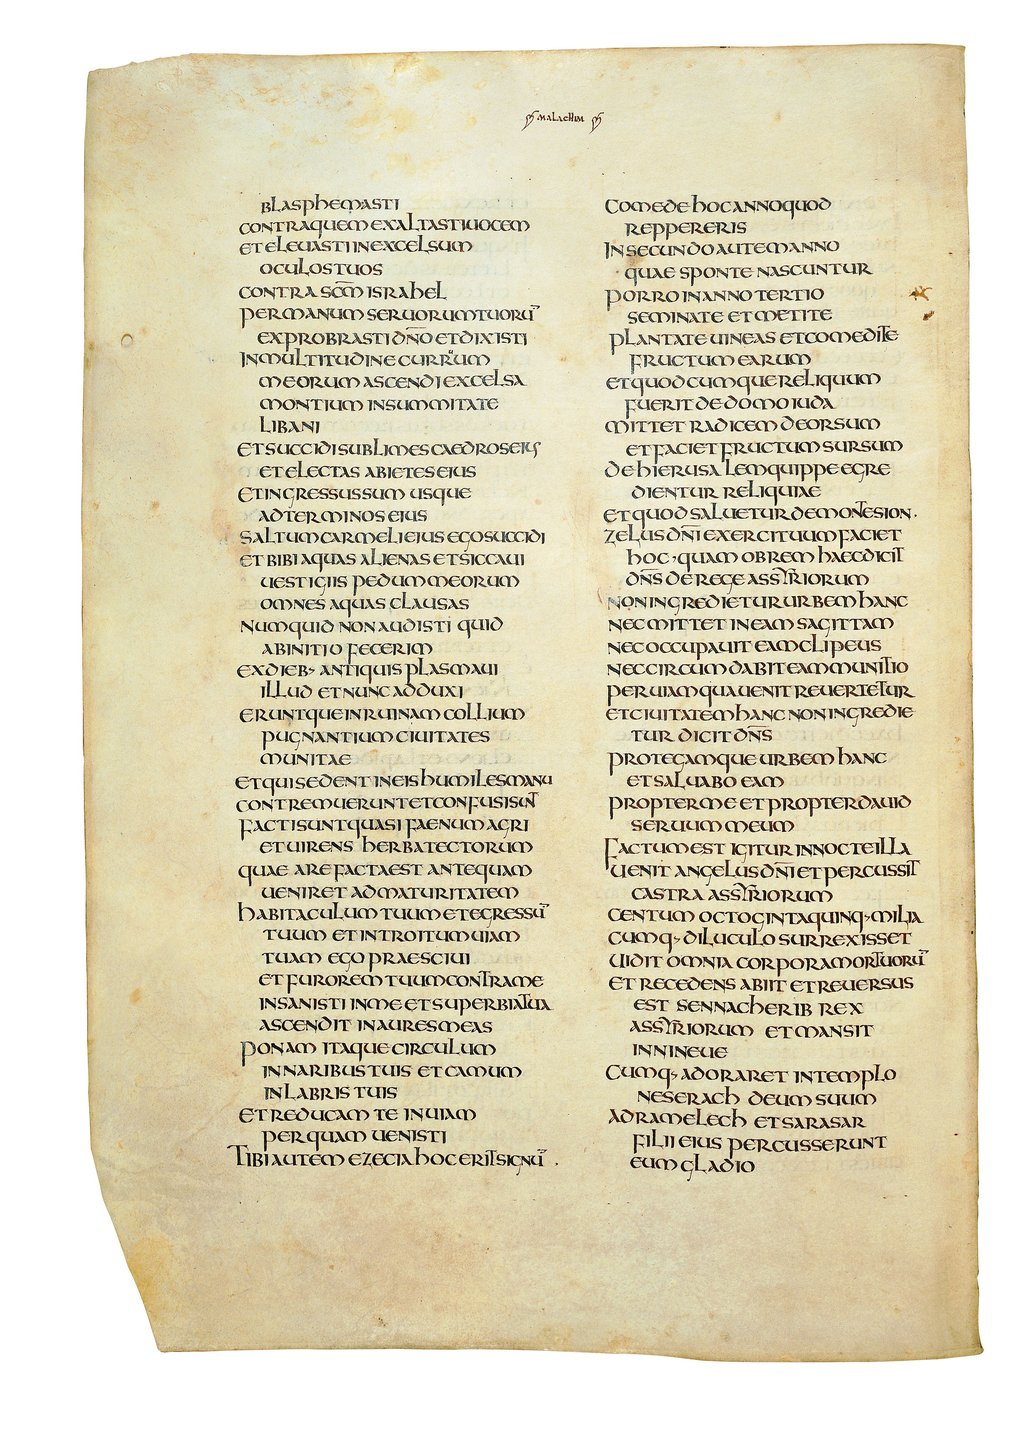 MALACHIM
BLASPHEMASTI
CONTRAQUEM EXALTASTIUOCEM
ET ELEUASTI IN EXCELSUM
OCULOS TUOS
CONTRA SC̅M ISRAHEL
PER MANUM SERUORUM TUORU̅
EXPROBRASTI DN̅O ET DIXISTI
IN MULTITUDINE CURRUUM
MEORUM ASCENDI EXCELSA
MONTIUM IN SUMMITATE
LIBANI
ET SUCCIDI SUBLIMES CAEDROS EIUS
ET ELECTAS ABIETES EIUS
ET INGRESSUS SUM USQUE
AD TERMINOS EIUS
SALTUM CARMELI EIUS EGO SUCCIDI
ET BIBI AQUAS ALIENAS ET SICCAUI
UESTIGIIS PEDUM MEORUM
OMNES AQUAS CLAUSAS
NUMQUID NON AUDISTI QUID
AB INITIO FECERIM
EX DIEB· ANTIQUIS PLASMAUI
ILLUD ET NUNC ADDUXI
ERUNTQUE IN RUINAM COLLIUM
PUGNANTIUM CIUITATES
MUNITAE
ET QUI SEDENT IN EIS HUMILES MANU
CONTREMUERUNT ET CONFUSI SUNT
FACTI SUNT QUASI FAENUM AGRI
ET UIRENS HERBA TECTORUM
QUAE AREFACTA EST ANTEQUAM
UENIRET AD MATURITATEM
HABITACULUM TUUM ET EGRESSU̅
TUUM ET INTROITUM UIAM
TUAM EGO PRAESCIUI
ET FUROREM TUUM CONTRA ME
INSANISTI IN ME ET SUPERBIA TUA
ASCENDIT IN AURES MEAS
PONAM ITAQUE CIRCULUM
IN NARIBUS TUIS ET CAMUM
IN LABRIS TUIS
ET REDUCAM TE IN UIAM
PER QUAM UENISTI
TIBI AUTEM EZECIA HOC ERIT SIGNU̅ .
COMEDE HOC ANNO QUOD
REPPERERIS
IN SECUNDO AUTEM ANNO
QUAE SPONTE NASCUNTUR
PORRO IN ANNO TERTIO
SEMINATE ET METITE
PLANTATE UINEAS ET COMEDITE
FRUCTUM EARUM
ET QUODCUMQUE RELIQUUM
FUERIT DE DOMO IUDA
MITTET RADICEM DEORSUM
ET FACIET FRUCTUM SURSUM
DE HIERUSALEM QUIPPE EGRE
DIENTUR RELIQUIAE
ET QUOD SALUETUR DE MONTE SION.
ZELUS DN̅I EXERCITUUM FACIET
HOC · QUAM OB REM HAEC DICIT
DN̅S DE REGE ASSYRIORUM
NON INGREDIETUR URBEM HANC
NEC MITTET IN EAM SAGITTAM
NEC OCCUPAUIT EAM CLIPEUS
NEC CIRCUMDABIT EAM MUNITIO
PER UIAM QUA UENIT REUERTETUR
ET CIUITATEM HANC NON INGREDIE
TUR DICIT DN̅S
PROTEGAMQUE URBEM HANC
ET SALUABO EAM
PROPTER ME ET PROPTER DAUID
SERUUM MEUM
FACTUM EST IGITUR IN NOCTE ILLA
UENIT ANGELUS DN̅I ET PERCUSSIT
CASTRA ASSYRIORUM
CENTUM OCTOGINTA QUINQ· MILIA
CUMQ· DILUCULO SURREXISSET
UIDIT OMNIA CORPORA MORTUORU̅
ET RECEDENS ABIIT ET REUERSUS
EST SENNACHERIB REX
ASSYRIORUM ET MANSIT
IN NINEUE
CUMQ· ADORARET IN TEMPLO
NESERACH DEUM SUUM
ADRAMELECH ET SARASAR
FILII EIUS PERCUSSERUNT
EUM GLADIO